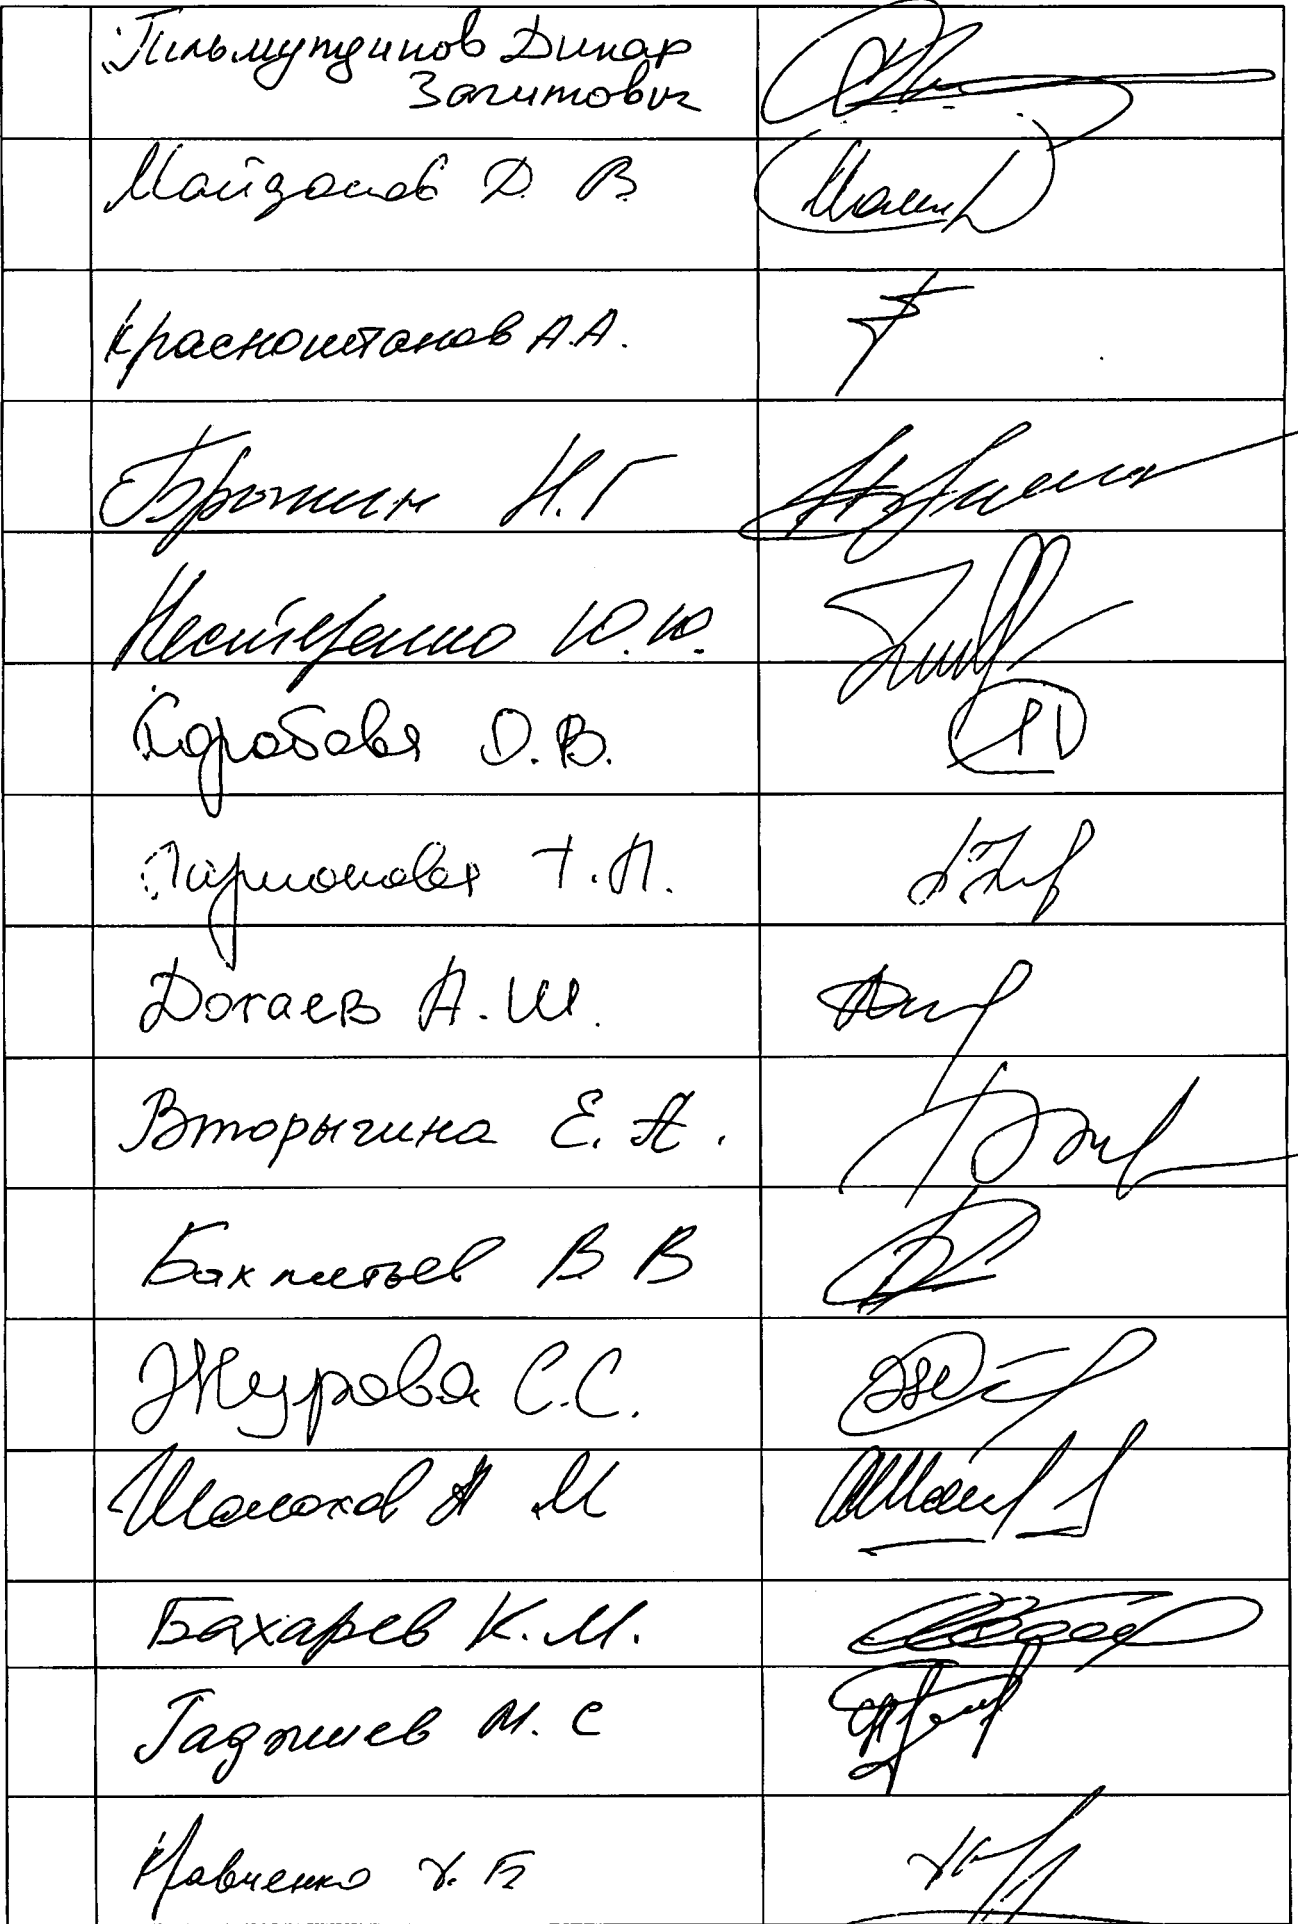 Гильмутдинов Динар
Загитович
Майданов Д. В.
Красноштанов А.А.
Брыкин Н.Г
Нестеренко Ю.Ю.
Коробова О.В.
Ларионова Т.П.
Догаев А.Ш.
Вторыгина Е.А.
Бахметьев В В
Журова С.С.
Шолохов А М
Бахарев К.М.
Гаджиев М. С
Кравченко Д. Б